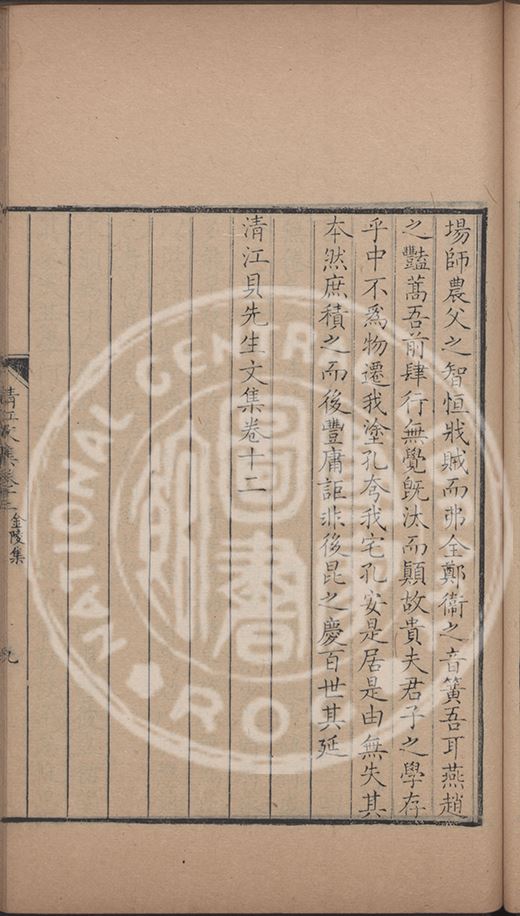 場師農父之智恒戕賊而弗全鄭衞之音簧吾耳燕趙
之豔蒿吾前肆行無覺旣汰而顚故貴夫君子之學存
乎中不爲物遷我塗孔夸我宅孔安是居是由無失其
本然庶積之而後豐庸詎非後昆之慶百世其延
清江貝先生文集卷十二
清江文集卷十二 金陵集 九
NATIONAL CENTRAL
R.O.
圖書